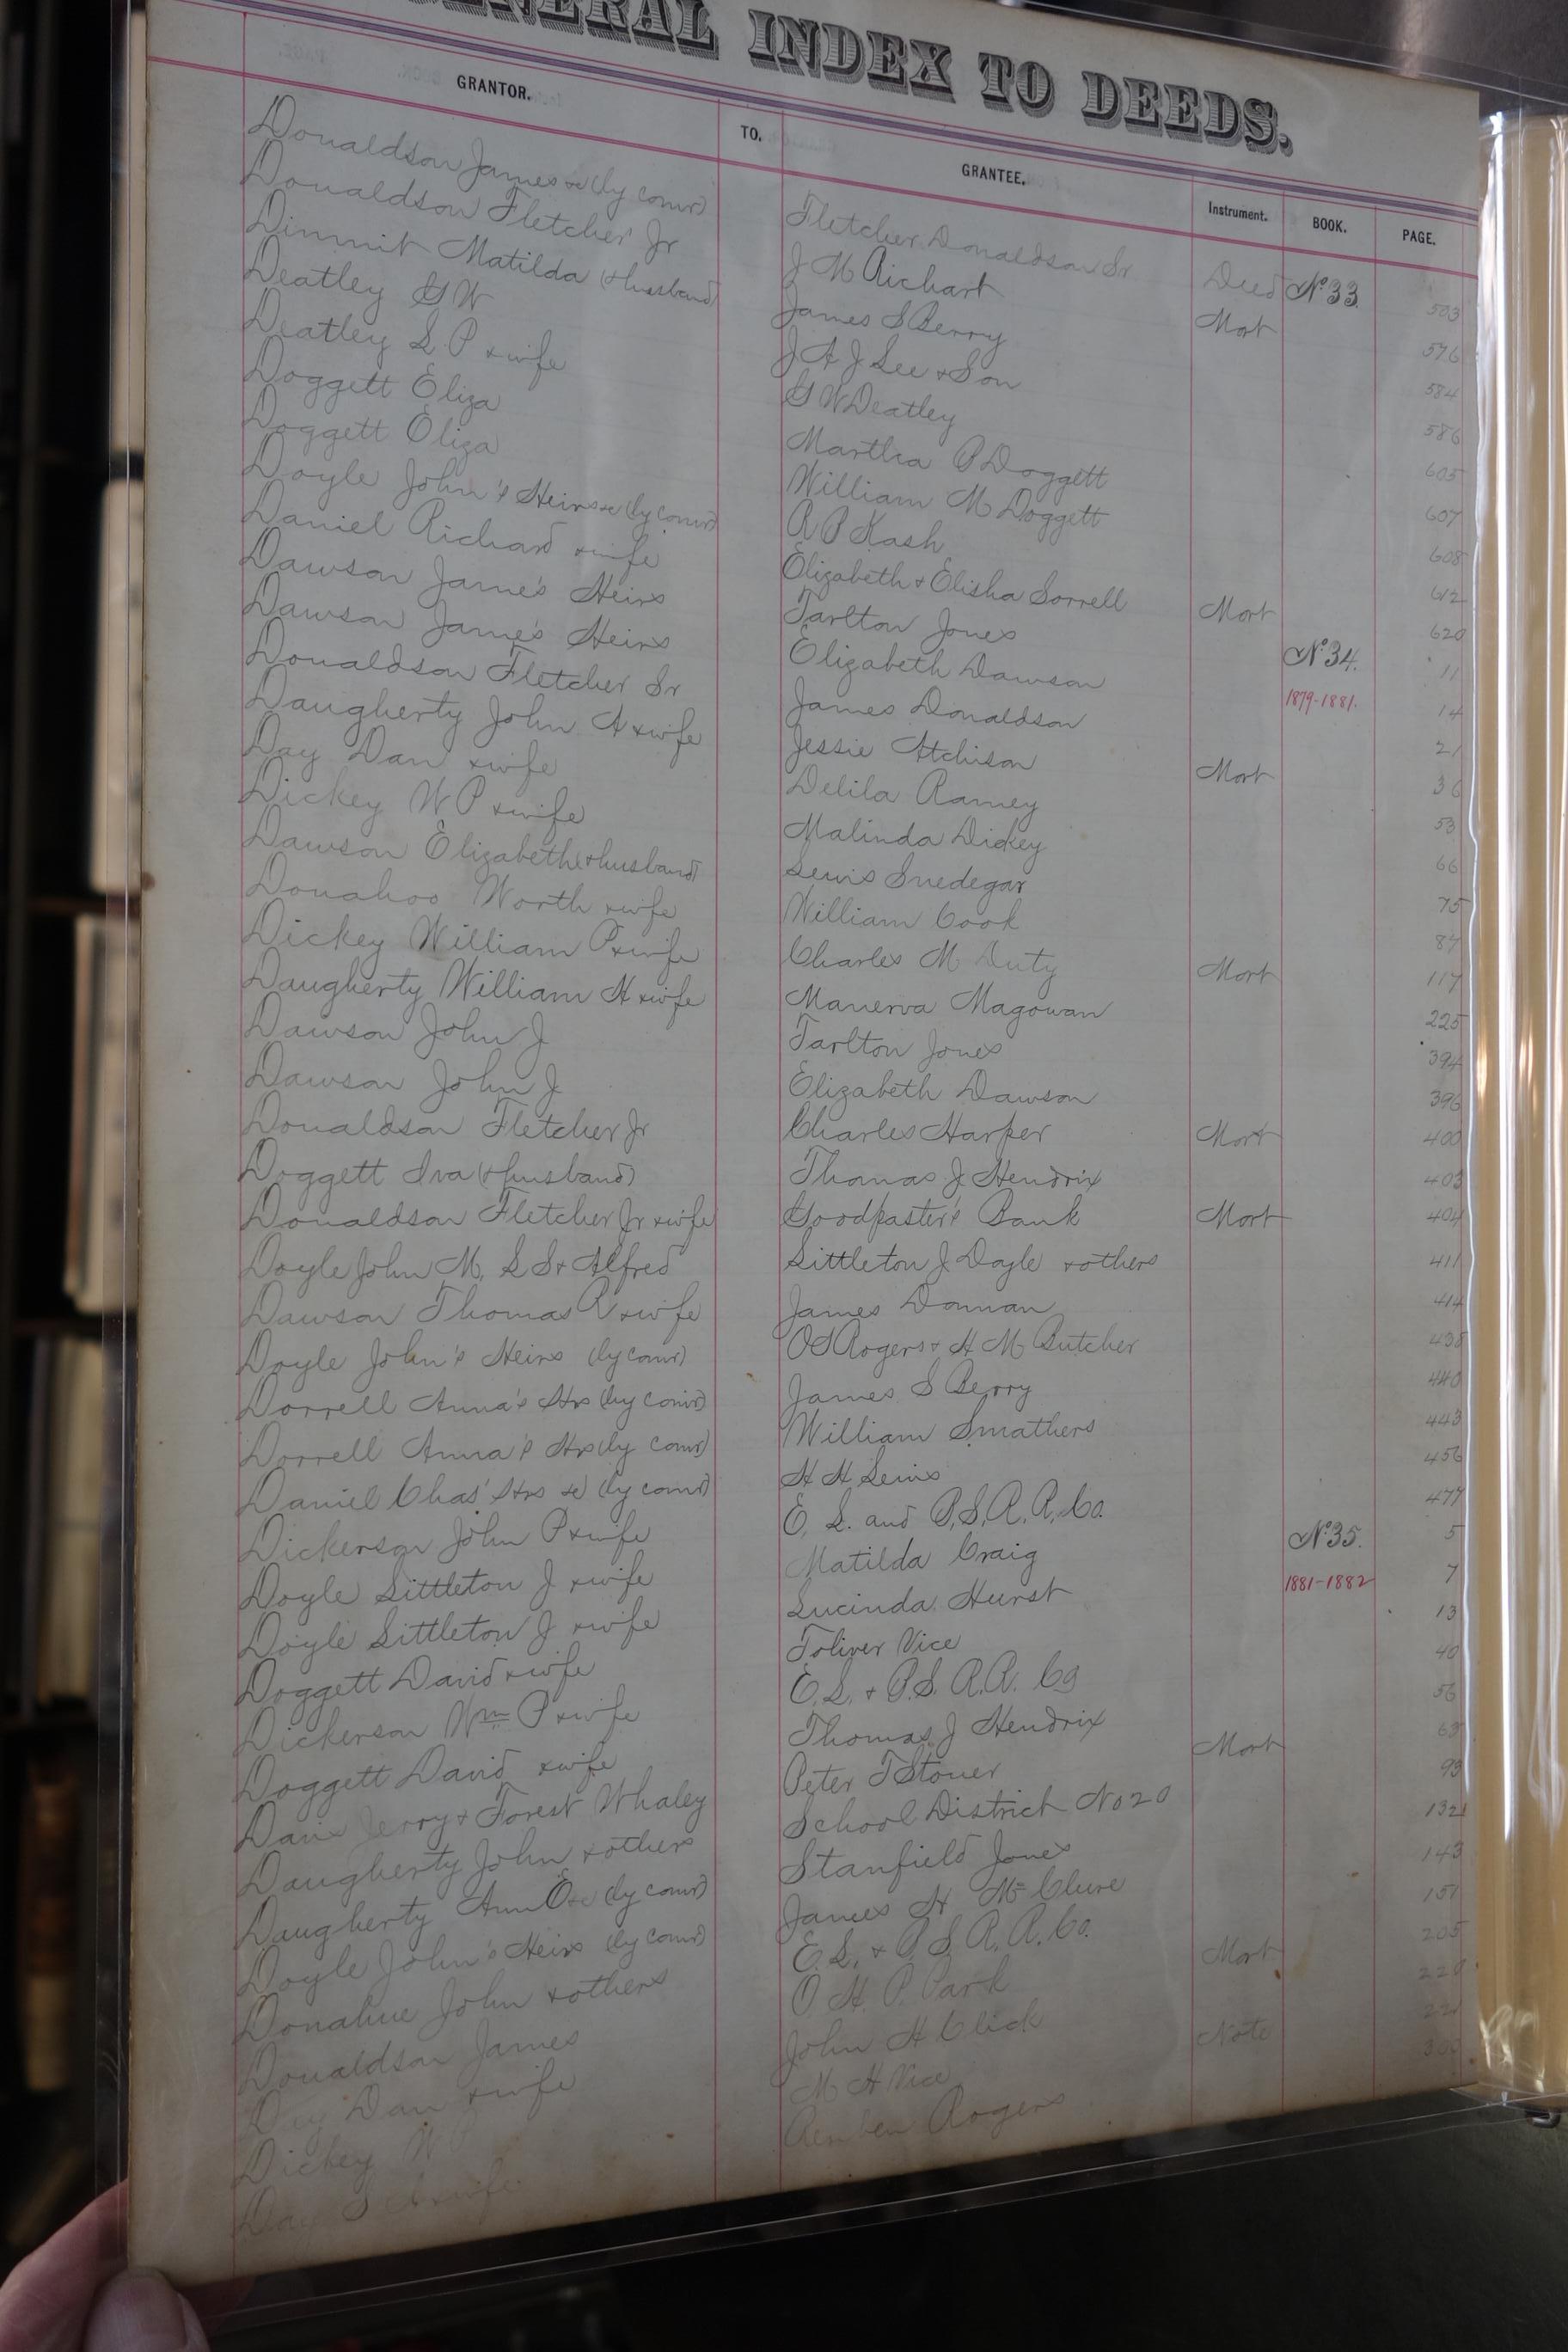 GENERAL INDEX TO DEEDS.
GRANTOR. TO. GRANTEE. Instrument. BOOK. PAGE.
Donaldson James &c (by comr) Fletcher Donaldson Sr Deed No 33. 503
Donaldson Fletcher Jr J M Richart Mort 576
Dimmit Matilda (& husband) James S Berry 584
Deatley G W J A J Lee & Son 586
Deatley S P & wife G W Deatley 605
Doggett Eliza Martha P Doggett 607
Doggett Eliza William M Doggett 608
Doyle John's Heirs &c (by comr) R P Kash 612
Daniel Richard & wife Elizabeth & Elisha Sorrell Mort 620
Dawson Jame's Heirs Tarlton Jones No 34. 11
Dawson Jame's Heirs Elizabeth Dawson 1879-1881. 14
Donaldson Fletcher Sr James Donaldson 21
Daugherty John A & wife Jessie Atchison Mort 36
Day Dan & wife Delila Ramey 53
Dickey W P & wife Malinda Dickey 66
Dawson Elizabeth & husband Lewis Snedegar 75
Donahoo Worth & wife William Cook 87
Dickey William P & wife Charles M Duty Mort 117
Daugherty William H & wife Manerva Magowan 225
Dawson John J Tarlton Jones 394
Dawson John J Elizabeth Dawson 396
Donaldson Fletcher Jr Charles Harper Mort 400
Doggett Iva (& husband) Thomas J Hendrix 403
Donaldson Fletcher Jr & wife Goodpaster's Bank Mort 404
Doyle John M, L S & Alfred Littleton J Doyle & others 411
Dawson Thomas R & wife James Donnan 414
Doyle John's Heirs (by comr) O S Rogers & H M Butcher 438
Dorrell Anna's Hrs (by comr) James S Berry 440
Dorrell Anna's Hrs (by comr) William Smathers 443
Daniel Chas' Hrs &c (by comr) H H Lewis 456
Dickerson John P & wife E. L. and B. S. R. R. Co. 477
Doyle Littleton J & wife Matilda Craig No 35. 5
Doyle Littleton J & wife Lucinda Hurst 1881-1882 7
Doggett David & wife Toliver Vice 13
Dickerson Wm P & wife E. L. & B. S. R. R. Co 40
Doggett David & wife Thomas J Hendrix 56
Davis Jerry & Forest Whaley Peter T Stoner Mort 63
Daugherty John & others School District No 20 93
Daugherty Ann E &c (by comr) Stanfield Jones 132
Doyle John's Heirs (by comr) James H McClure 143
Donahue John & others E. L. & B. S. R. R. Co. 151
Donaldson James O H. P. Park Mort 205
Day Dan & wife John H Click 220
Dickey W P M H Vice Note 221
Day & wife Reuben Rogers 300